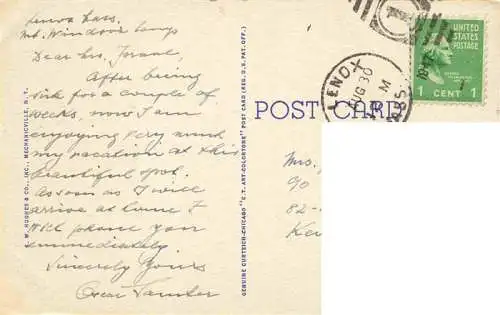 Lenox Mass.
Mt. Windsor Camp
Dear Mrs.
After being
sick for a couple of
weeks, now I am
enjoying very much
my vacation at this
beautiful spot.
As soon as I will
arrive at home I
will phone you
immediately.
Sincerely Yours
Oscar
E. W. HUGHES & CO., INC., MECHANICVILLE, N. Y.
GENUINE CURTEICH-CHICAGO "C.T. ART-COLORTONE" POST CARD (REG. U.S. PAT. OFF.)
POST CARD
LENOX
AUG 30
M
MASS.
UNITED STATES
POSTAGE
1 CENT 1
Mrs.
c/o
82-
Kew